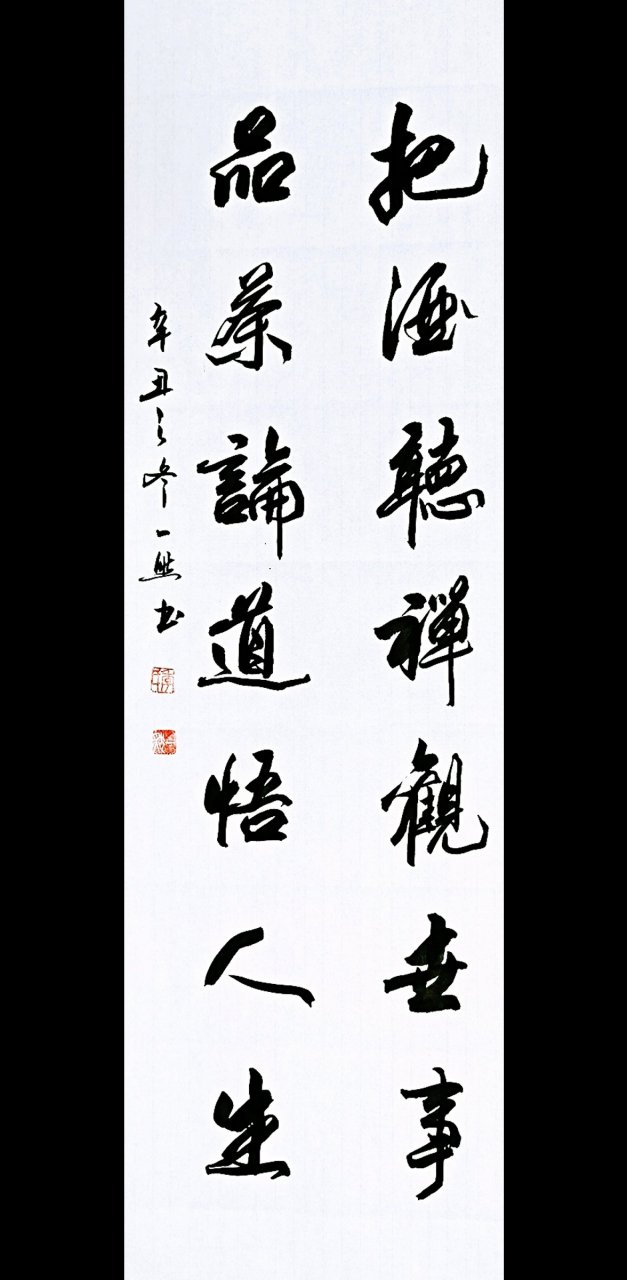 把酒聽禪觀世事
品茶論道悟人生
辛丑之冬一熊书